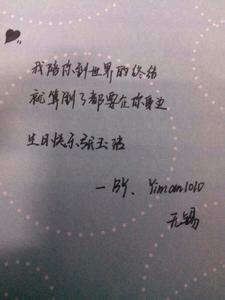 我陪你到世界的终结
就算倒了都要在你身边
生日快乐张玉洁
— BY. Yiman1010
无锡